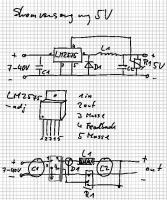 Stromversorgung 5V
+ LM2575 L1 +
7-40V C1 D1 C2 R1 5V
LM2575
-adj
1 in
2 out
3 Masse
4 Feedback
5 Masse
12345
L1
+ +
7-40V C1 D1 C2 out
- -
R1